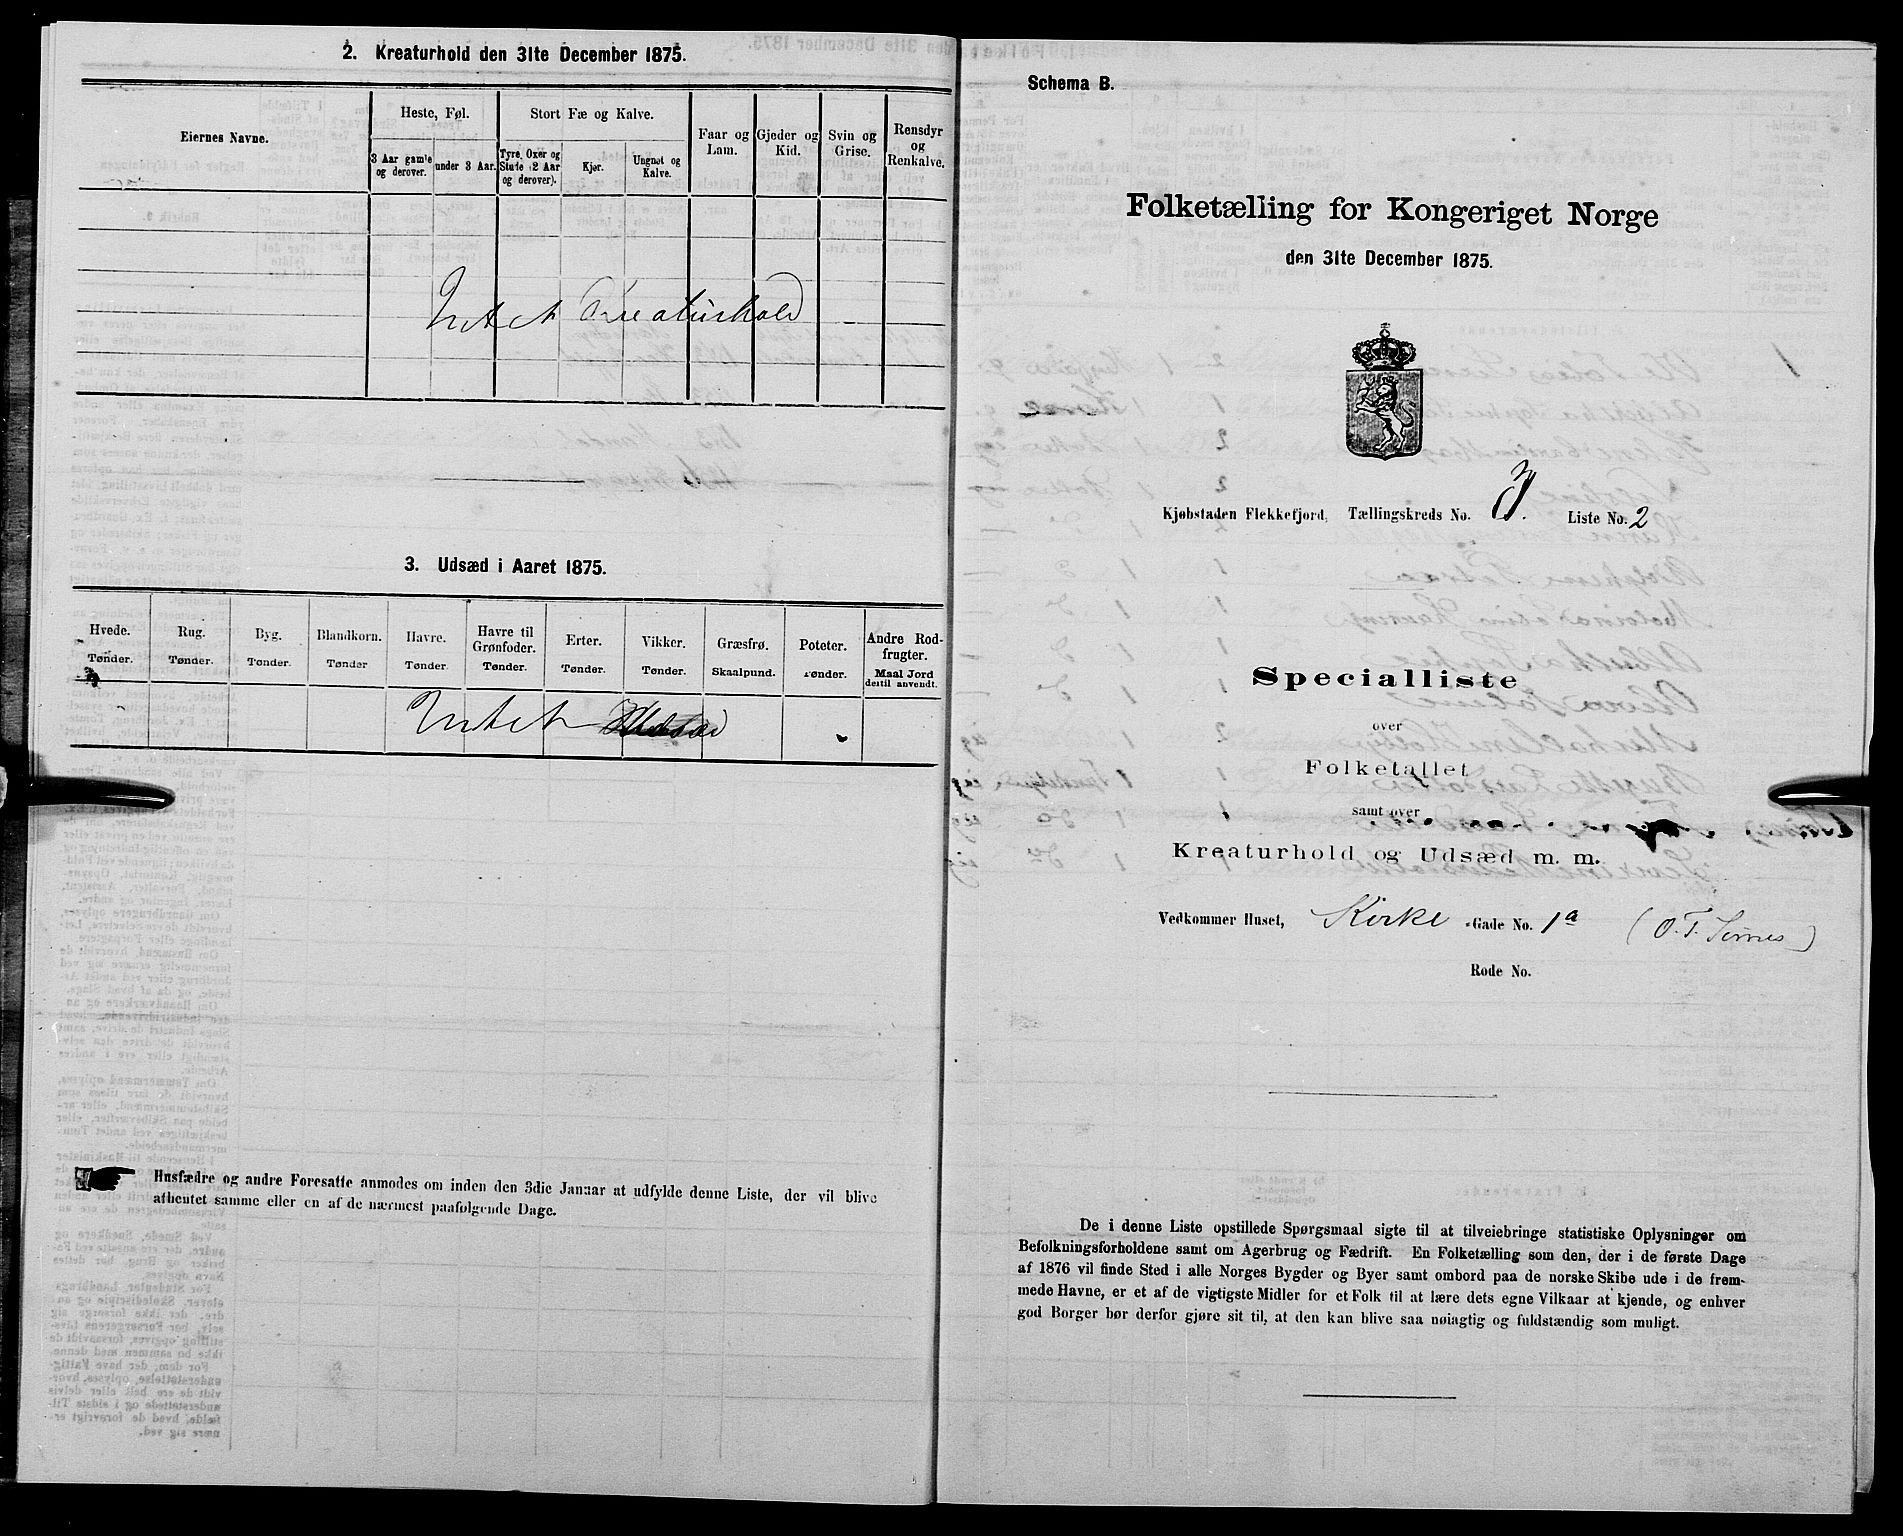 2. Kreaturhold den 31te December 1875.
Eiernes Navne.
Heste, Føl.
3 Aar gamle og derover.
under 3 Aar.
Stort Fæ og Kalve.
Tyre, Oxer og Stude (2 Aar og derover).
Kjør.
Ungnøt og Kalve.
Faar og Lam.
Gjeder og Kid.
Svin og Grise.
Rensdyr og Renkalve.
Intet Kreaturhold
3. Udsæd i Aaret 1875.
Hvede. Rug. Byg. Blandkorn. Havre. Havre til Grønfoder. Erter. Vikker. Græsfrø. Poteter. Andre Rodfrugter.
Tønder. Tønder. Tønder. Tønder Tønder. Tønder. Tønder. Tønder. Skaalpund. Tønder. Maal Jord dertil anvendt.
Intet Udsæd
Husfædre og andre Foresatte anmodes om inden den 3die Januar at udfylde denne Liste, der vil blive
afhentet samme eller en af de nærmest paafølgende Dage.
Schema B.
Folketælling for Kongeriget Norge
den 31te December 1875.
Kjøbstaden Flekkefjord, Tællingskreds No. 3. Liste No. 2
Specialliste
over
Folketallet
samt over
Kreaturhold og Udsæd m. m.
Vedkommer Huset, Kirke Gade No. 1a (O. T. Sirnes)
Rode No.
De i denne Liste opstillede Spørgsmaal sigte til at tilveiebringe statistiske Oplysninger om
Befolkningsforholdene samt om Agerbrug og Fædrift. En Folketælling som den, der i de første Dage
af 1876 vil finde Sted i alle Norges Bygder og Byer samt ombord paa de norske Skibe ude i de frem-
mede Havne, er et af de vigtigste Midler for et Folk til at lære dets egne Vilkaar at kjende, og enhver
god Borger bør derfor gjøre sit til, at den kan blive saa nøiagtig og fuldstændig som muligt.